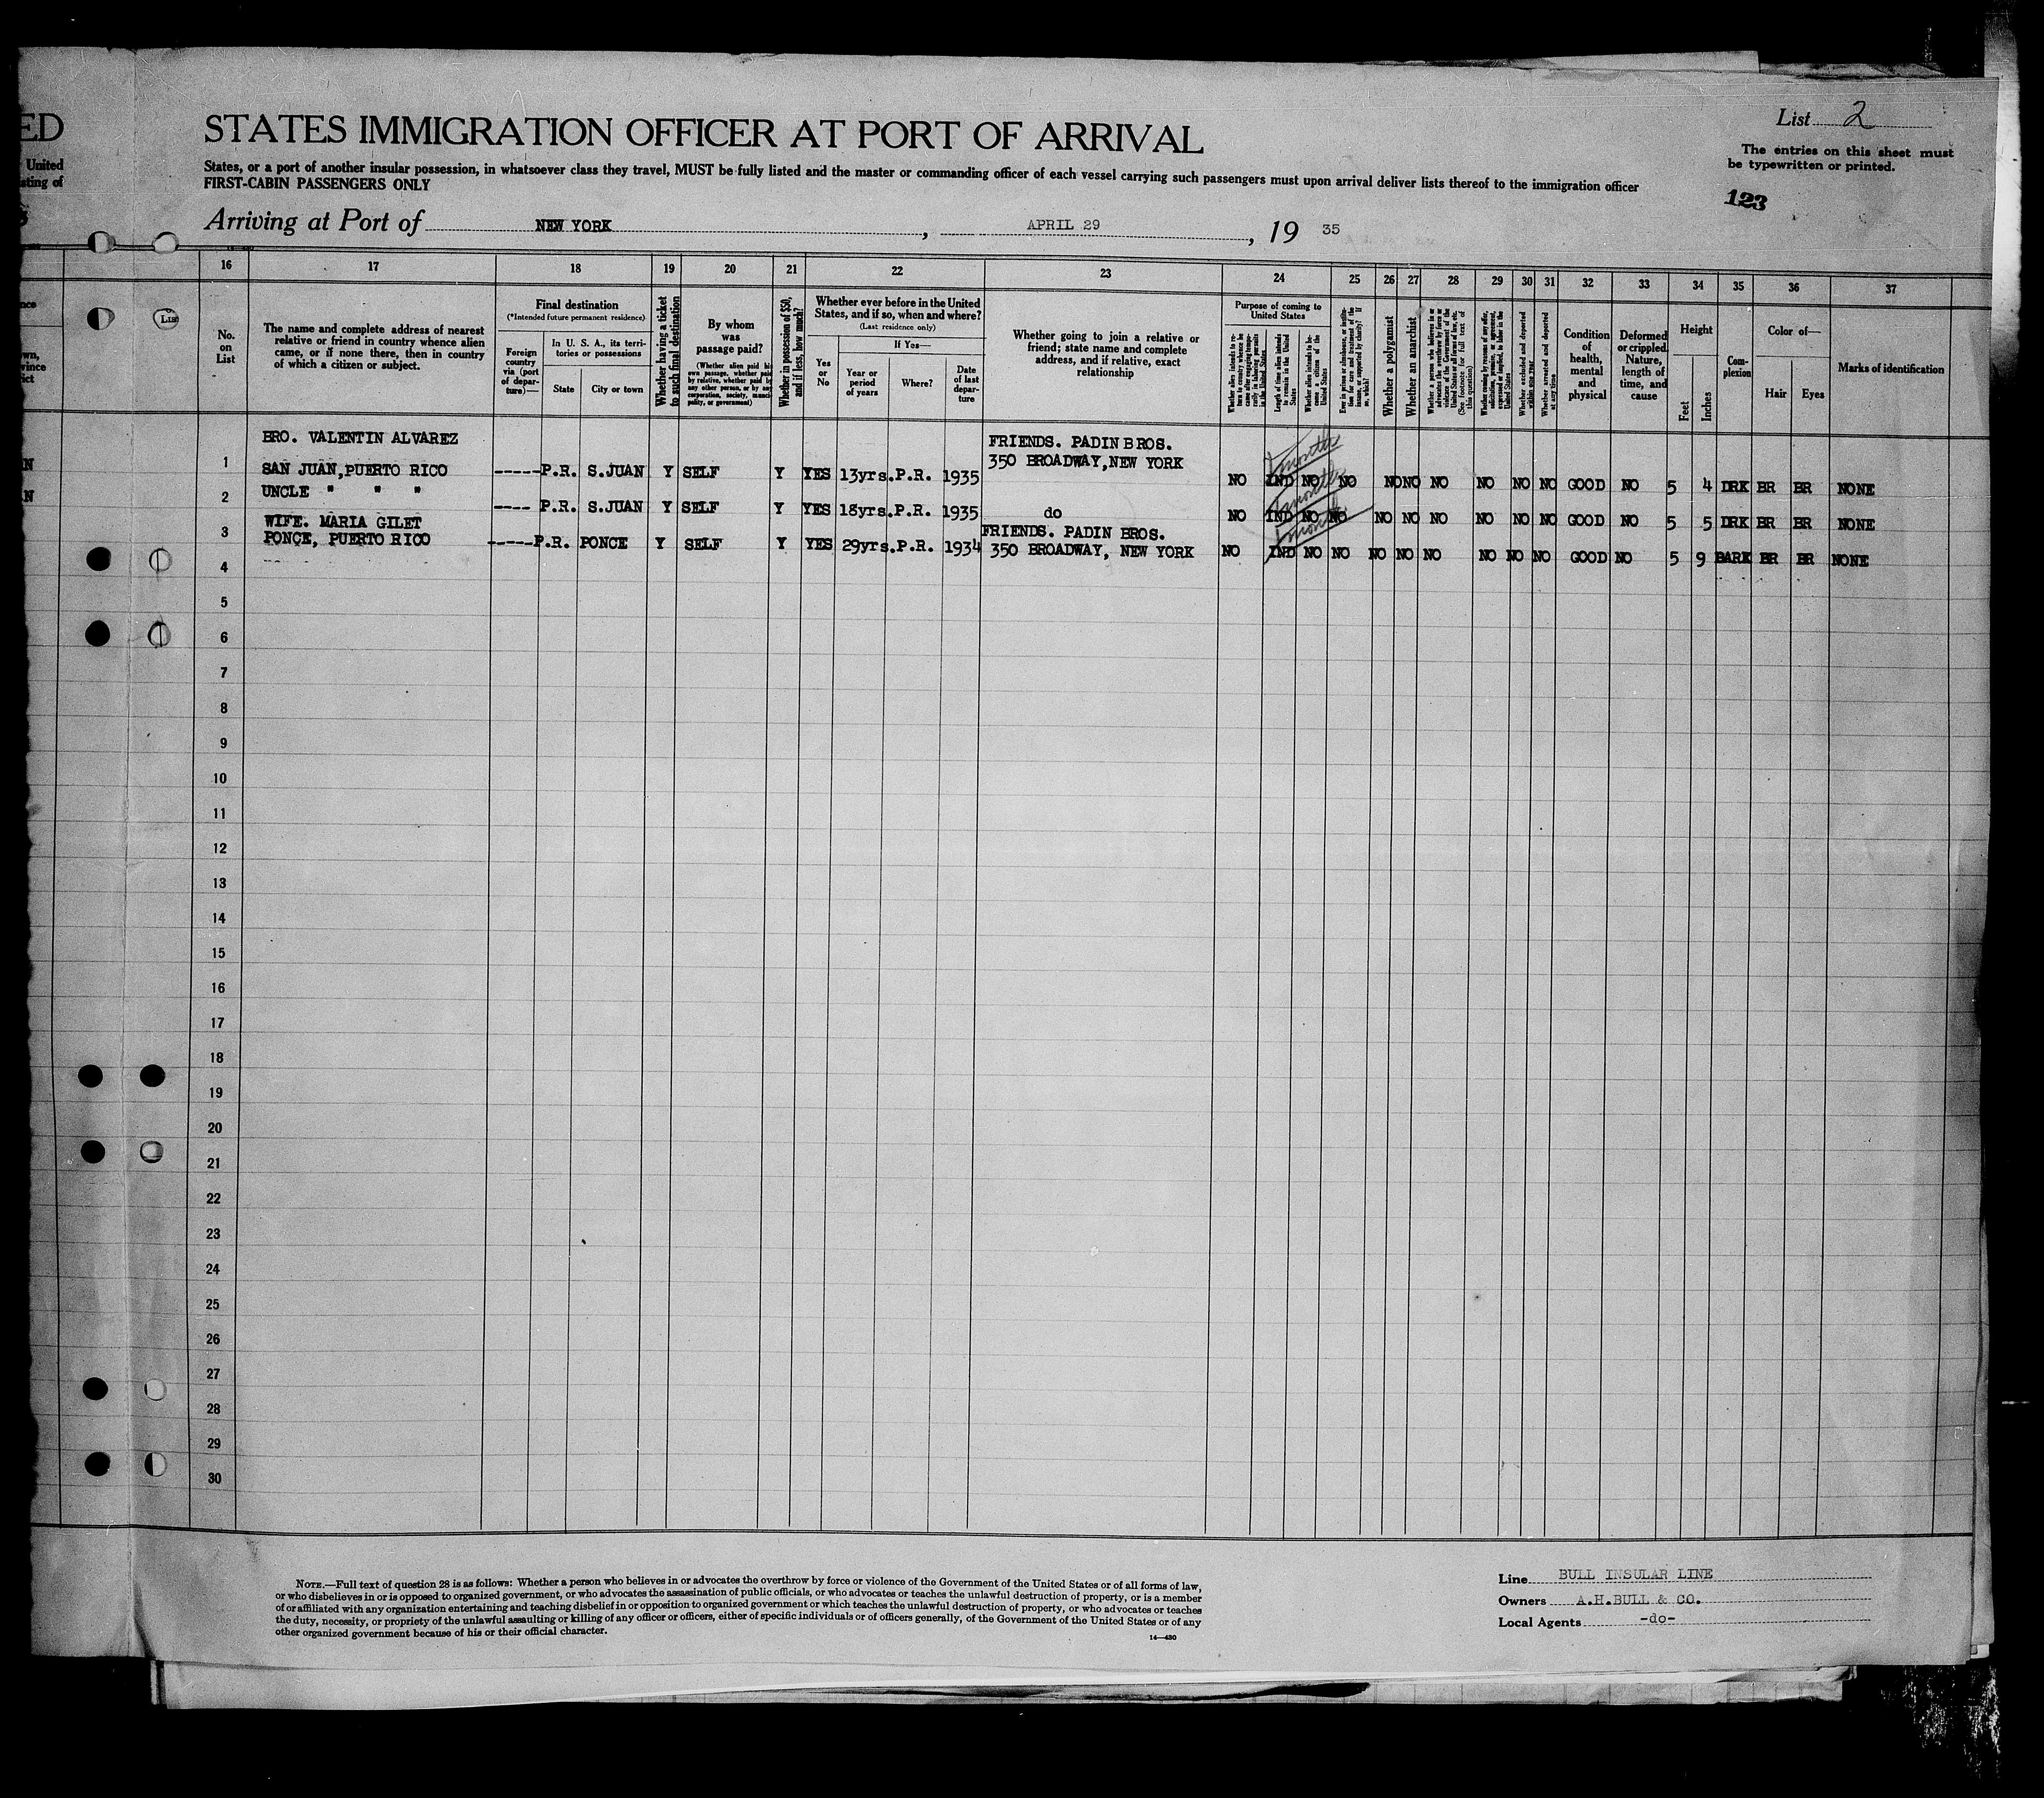 ED
STATES IMMIGRATION OFFICER AT PORT OF ARRIVAL
List 2
The entries on this sheet must
be typewritten or printed.
United
sting of
States, or a port of another insular possession, in whatsoever class they travel, MUST be fully listed and the master or commanding officer of each vessel carrying such passengers must upon arrival deliver lists thereof to the immigration officer
FIRST-CABIN PASSENGERS ONLY
123
Arriving at Port of NEW YORK, APRIL 29, 19 35
16 17 18 19 20 21 22 23 24 25 26 27 28 29 30 31 32 33 34 35 36 37
No.
on
List
The name and complete address of nearest
relative or friend in country whence alien
came, or if none there, then in country
of which a citizen or subject.
Final destination
(*Intended future permanent residence)
Foreign
country
via (port
of depar-
ture)—
In U. S. A., its terri-
tories or possessions
State
City or town
Whether having a ticket
to such final destination
By whom
was
passage paid?
(Whether alien paid his
own passage, whether paid
by relative, whether paid by
any other person, or by any
corporation, society, munici-
pality, or government)
Whether in possession of $50,
and if less, how much?
Whether ever before in the United
States, and if so, when and where?
(Last residence only)
Yes
or
No
If Yes—
Year or
period
of years
Where?
Date
of last
depar-
ture
Whether going to join a relative or
friend; state name and complete
address, and if relative, exact
relationship
Purpose of coming to
United States
Whether alien intends to re-
turn to country whence he
came after engaging tempo-
rarily in laboring pursuits
in the United States
Length of time alien intends
to remain in the United
States
Whether alien intends to be-
come a citizen of the
United States
Ever in prison or almshouse, or institu-
tion for care and treatment of the
insane, or supported by charity? If
so, which?
Whether a polygamist
Whether an anarchist
Whether a person who believes in or
advocates the overthrow by force or
violence of the Government of the
United States or all forms of law, etc.
(See footnote for full text of
this question)
Whether coming by reason of any offer,
solicitation, promise, or agreement,
expressed or implied, to labor in the
United States
Whether excluded and deported
within one year
Whether arrested and deported
at any time
Condition
of
health,
mental
and
physical
Deformed
or crippled.
Nature,
length of
time, and
cause
Height
Feet
Inches
Com-
plexion
Color of—
Hair
Eyes
Marks of identification
BRO. VALENTIN ALVAREZ FRIENDS. PADIN BROS.
1 SAN JUAN,PUERTO RICO -----P.R. S.JUAN Y SELF Y YES 13yrs.P.R. 1935 350 BROADWAY,NEW YORK NO IND NO NO NO NO NO NO NO NO GOOD NO 5 4 DRK BR BR NONE
months
2 UNCLE " " " ---- P.R. S.JUAN Y SELF Y YES 18yrs.P.R. 1935 do NO IND NO NO NO NO NO NO NO NO GOOD NO 5 5 DRK BR BR NONE
months
WIFE. MARIA GILET FRIENDS. PADIN BROS.
3 PONCE, PUERTO RICO -----P.R. PONCE Y SELF Y YES 29yrs.P.R. 1934 350 BROADWAY, NEW YORK NO IND NO NO NO NO NO NO NO NO GOOD NO 5 9 DARK BR BR NONE
months
4
5
6
7
8
9
10
11
12
13
14
15
16
17
18
19
20
21
22
23
24
25
26
27
28
29
30
NOTE.—Full text of question 28 is as follows: Whether a person who believes in or advocates the overthrow by force or violence of the Government of the United States or of all forms of law,
or who disbelieves in or is opposed to organized government, or who advocates the assassination of public officials, or who advocates or teaches the unlawful destruction of property, or is a member
of or affiliated with any organization entertaining and teaching disbelief in or opposition to organized government or which teaches the unlawful destruction of property, or who advocates or teaches
the duty, necessity, or propriety of the unlawful assaulting or killing of any officer or officers, either of specific individuals or of officers generally, of the Government of the United States or of any
other organized government because of his or their official character.
14—430
Line BULL INSULAR LINE
Owners A.H.BULL & CO.
Local Agents -do-